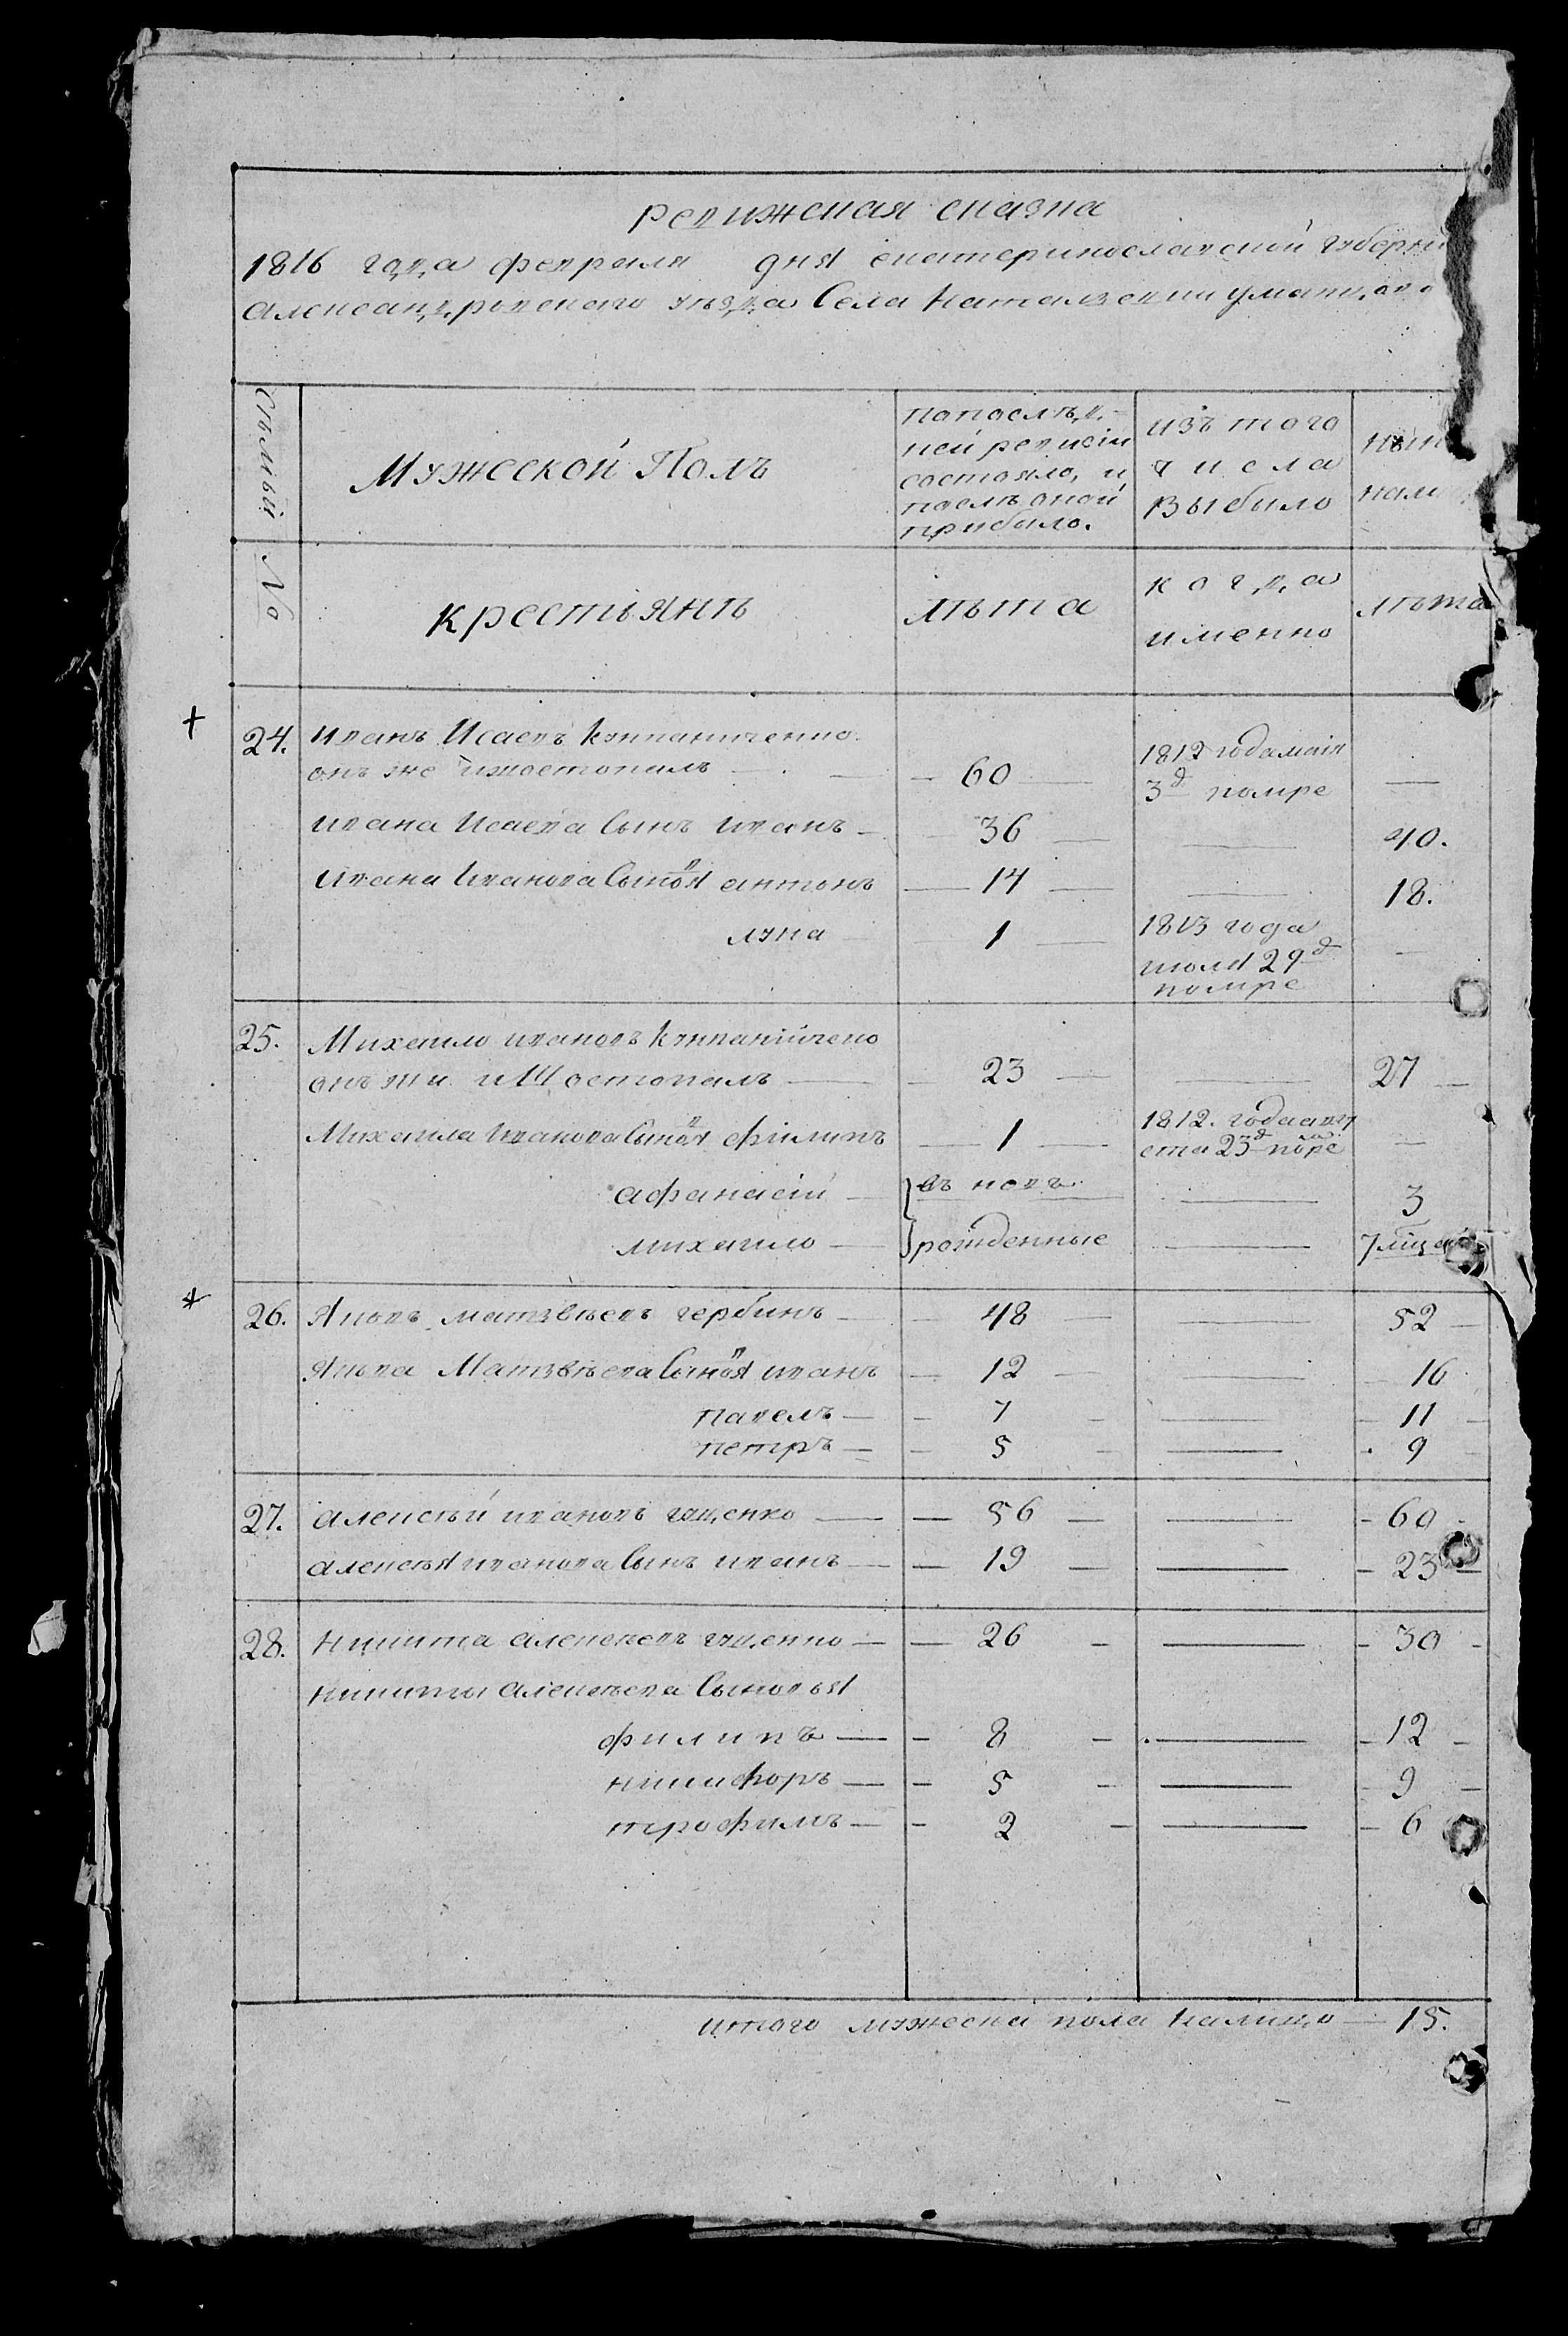 ревижская сказка
1816 года февраля дня екатеринославской губерни
александровскаго уѣзда Села Наталзевки
Семьи №
Мужескои Полъ
попослѣд-
ней ревизіи
состояло, и
послѣ оной
прибыло.
изъ того
числа
Выбыло
крестьянъ
лѣта
когда
именно
лѣта
24. иванъ Исаевъ
онъ же — 60 — 1812 года маія 3д помре —
ивана Исаева Сынъ иванъ — 36 — 40.
ивана иванова Сыновя антонъ — 14 — 18.
лука — 1 — 1813 года
июля 29д
помре
25. Михаило ивановъ
онъ жи — 23 — 27 —
Михаила иванова Сыновя филипъ — 1 — 1812. года авгу
ста 23д поре —
афанасій — въ новъ — 3
михаило — рожденные — 7 мцъ
26. Яковъ матвѣевъ чербинъ — 48 — 52 —
Якова Матвѣева Сыновя иванъ — 12 — 16
павелъ — 7 — 11 —
петръ — 5 — 9
27. алексѣй ивановъ гуценко — 56 — 60 -
алексѣя иванова Сынъ иванъ — 19 — 23 —
28. никита алексѣевъ гуценко — 26 — 30 -
никиты алексѣева Сыновья
филипъ — 8 — 12 —
никифоръ — 5 — 9 —
трофимъ — 2 — 6
итого мужеска пола налицо — 15.